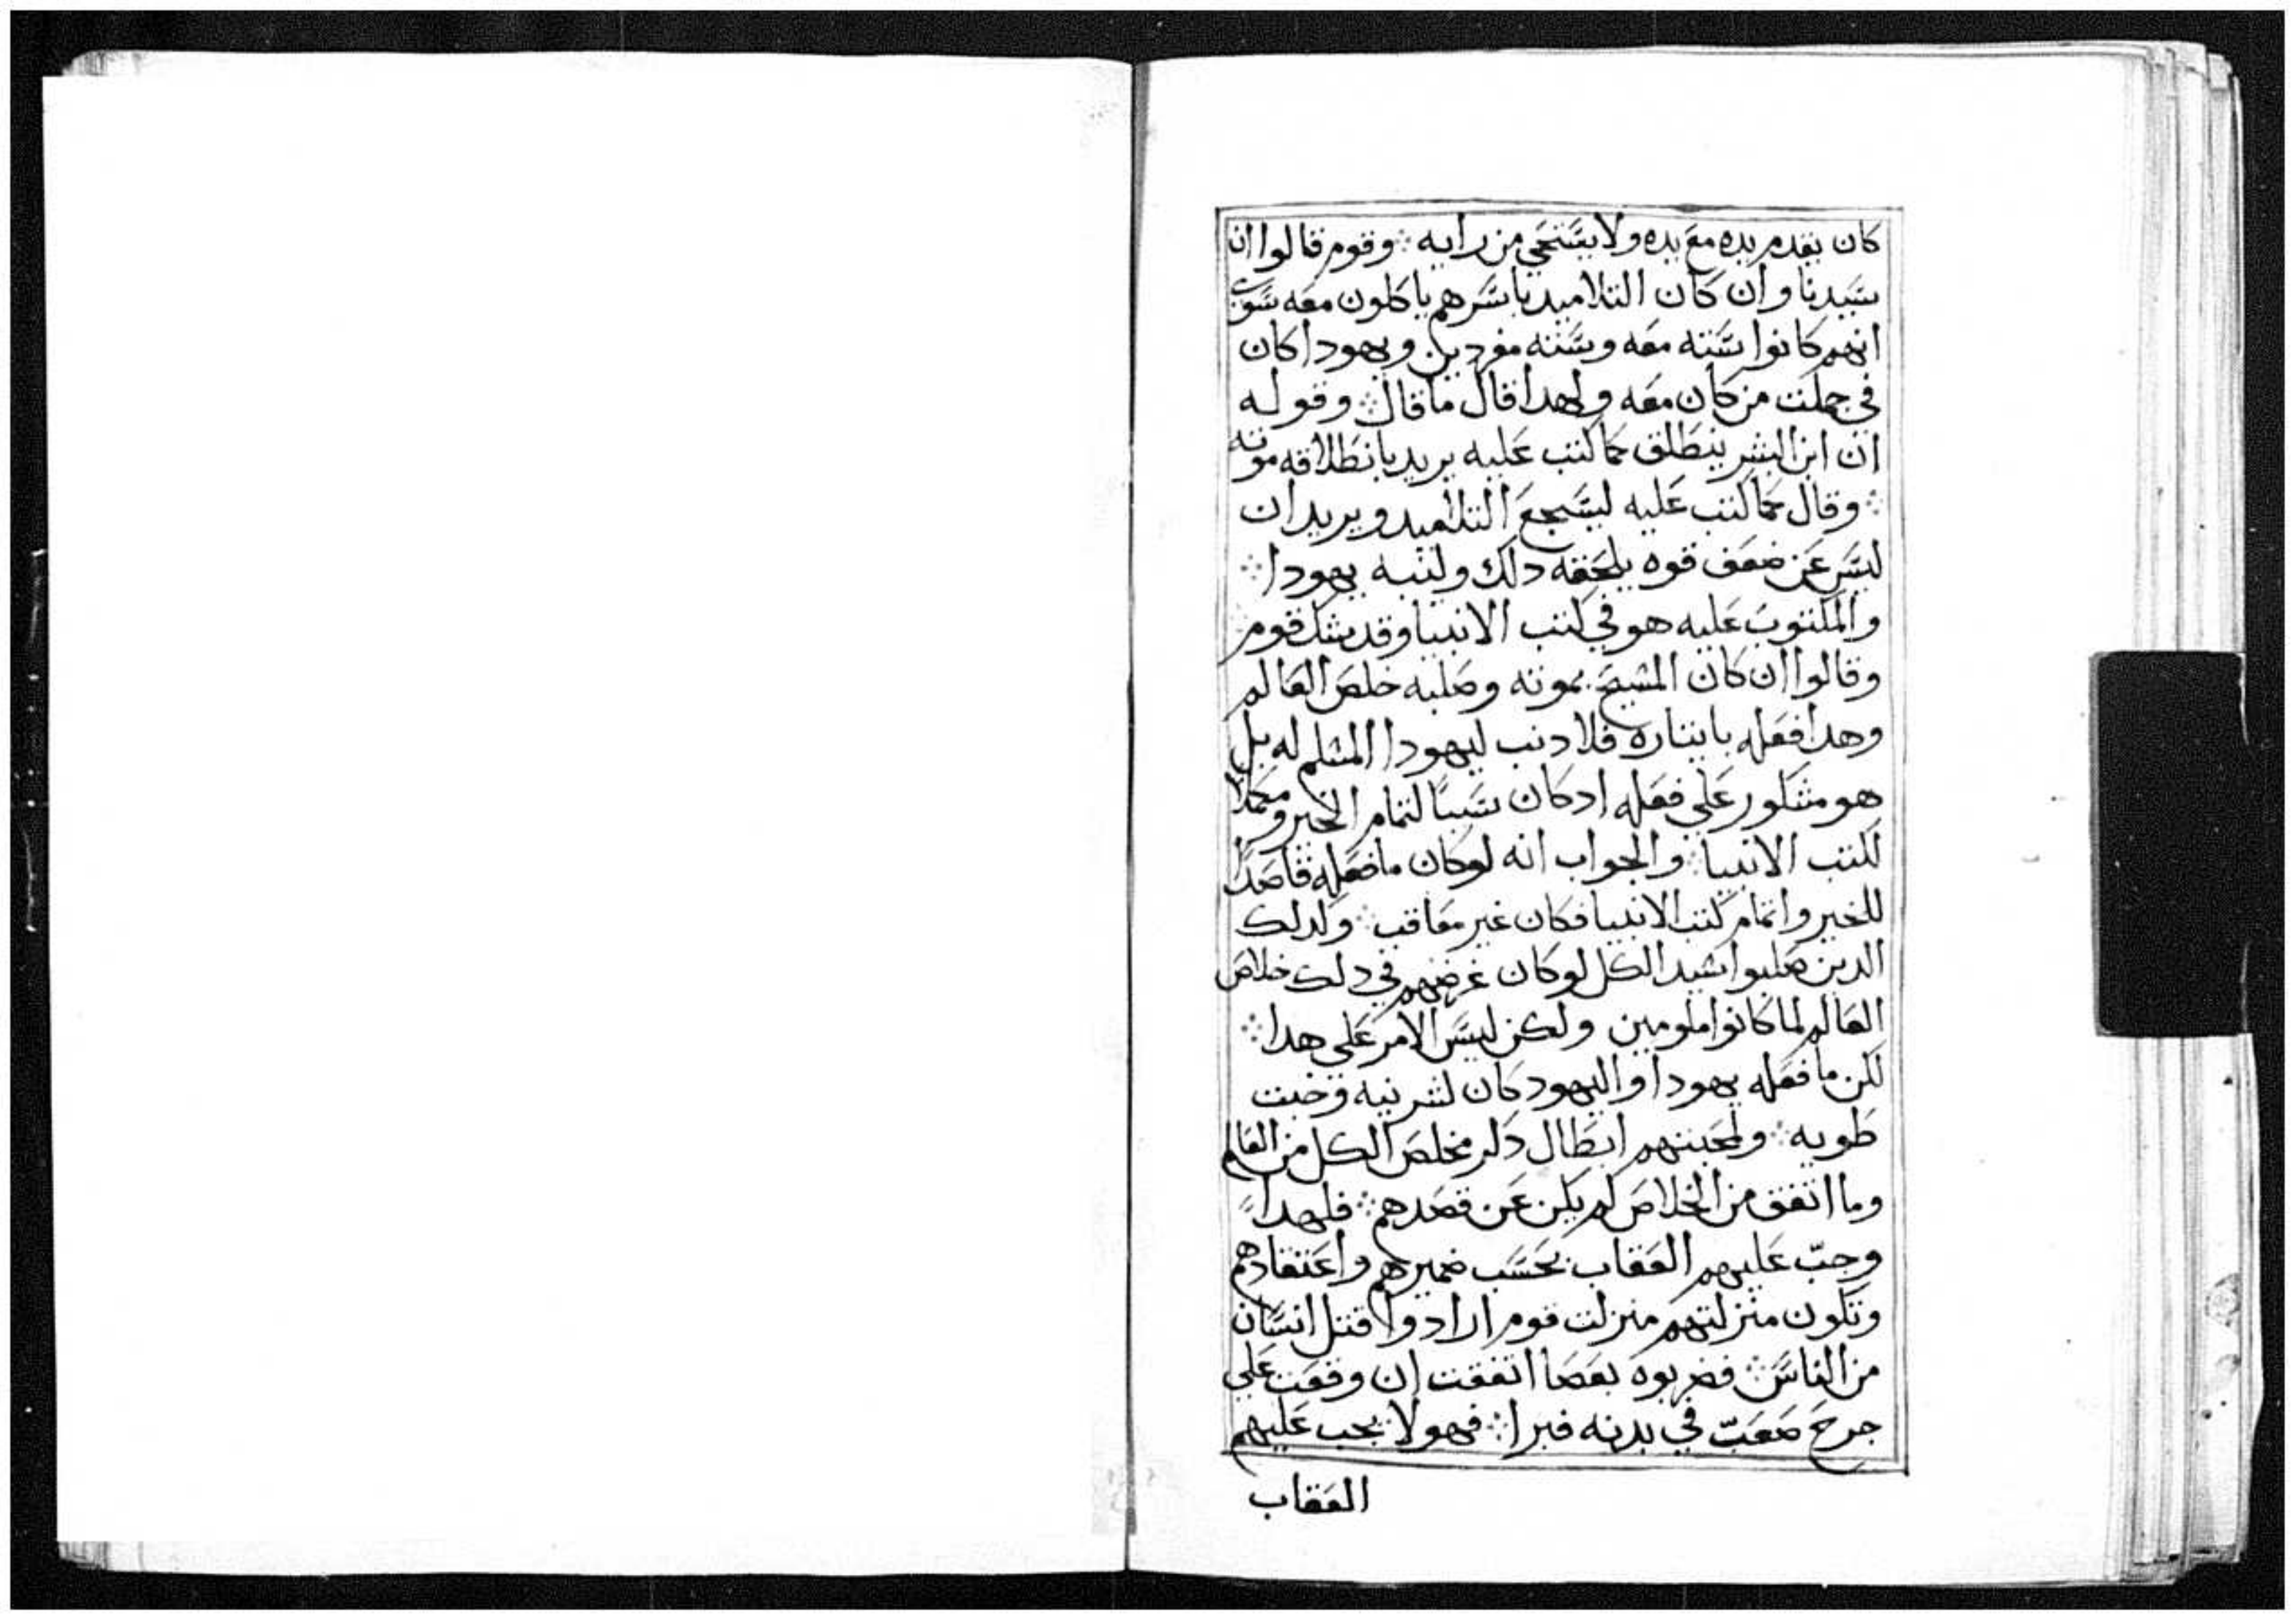 كان يقدم يده مع يده ولا يستحي من رايه ⁘ وقوم قالوا ان
سيدنا وان كان التلاميد باسرهم ياكلون معه سوى
انهم كانوا ستة معه وستة مفردين ويهودا كان
في جملت من كان معه ولهدا قال ما قال ⁘ وقوله
ان ابن البشر ينطلق كما كتب عليه يريد بانطلاقه موته
⁘ وقال كما كتب عليه ليشجع التلاميد ويريد ان
ليس عن ضعف قوه يلحقه دلك ولتنبه يهودا ⁘
والمكتوب عليه هو في كتب الانبيا وقد يشك قوم
وقالوا ان كان المسيح بموته وصلبه خلص العالم
وهدا فعله بايتاره فلا دنب ليهودا المسلم له بل
هو مشكور على فعله ادكان سببا لتمام الخير ومكملا
لكتب الانبيا ⁘ والجواب انه لوكان ما فعله قاصدا
للخير واتمام كتب الانبيا فكان غير معاقب ⁘ ولدلك
الدين صلبوا سيد الكل لوكان غرضهم في دلك خلاص
العالم لما كانوا ملومين ولكن ليس الامر على هدا ⁘
لكن ما فعله يهودا واليهود كان لشر نيه وخبت
طويه ⁘ ولمحبتهم ابطال دكر مخلص الكل من العالم
وما اتفق من الخلاص لم يكن عن قصدهم ⁘ فلهدا
وجب عليهم العقاب بحسب ضميرهم واعتقادهم
وتكون منزلتهم منزلت قوم ارادوا قتل انسان
من الناس ⁘ فضربوه بعصا اتفقت ان وقعت على
جرح صعب في بدنه فبرا ⁘ فهولا يجب عليهم
العقاب